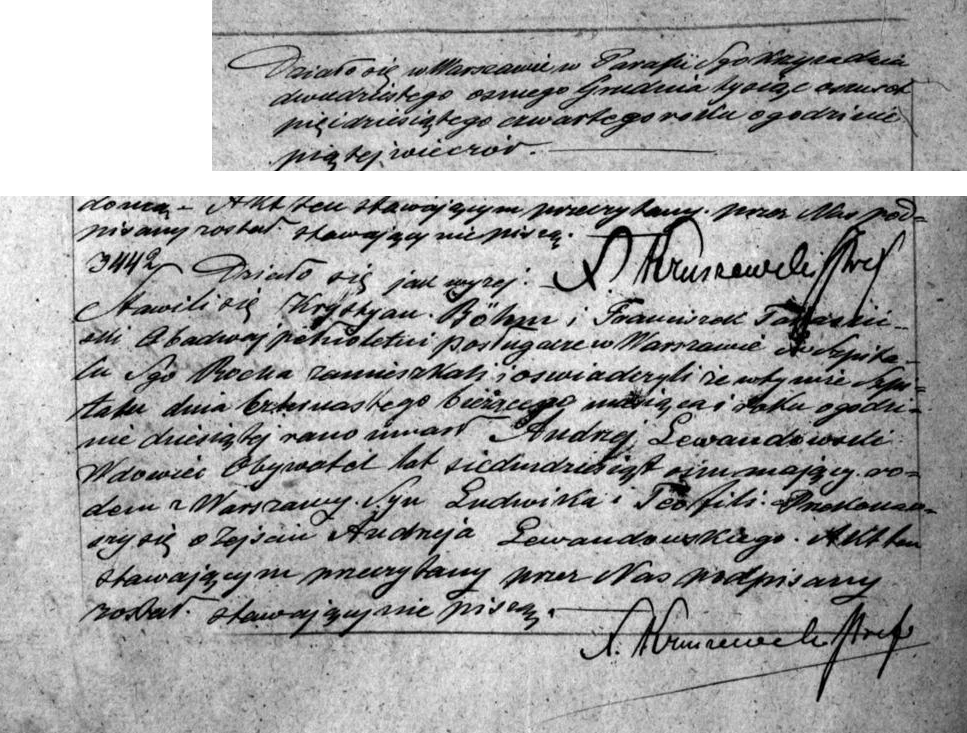 Działo się w Warszawie w Parafii Sgo Krzyża dnia
dwudziestego osmego Grudnia tysiąc osmset
pięćdziesiątego czwartego roku o godzinie
piątej wieczór.
domą - Akt ten stawającym przeczytany przez Nas pod=
pisany został stawający nie piszą.
3442 Działo się jak wyżej:
Stawili się Krystyan Böhm i Franciszek
ski Obadwaj pełnoletni posługacze w Warszawie w Szpita-
lu Sgo Rocha zamieszkali i oświadczyli że w tymże Szpi=
talu dnia bieżącego miesiąca i roku o godzi=
nie dziesiątej rano umarł Andrzej Lewandowski
Wdowiec Obywatel lat siedmdziesiąt mający ro=
dem z Warszawy Syn Ludwika i Teofili. Przekonaw=
szy się o Zejściu Andrzeja Lewandowskiego. Akt ten
stawającym przeczytany przez Nas podpisany
został stawający nie piszą.